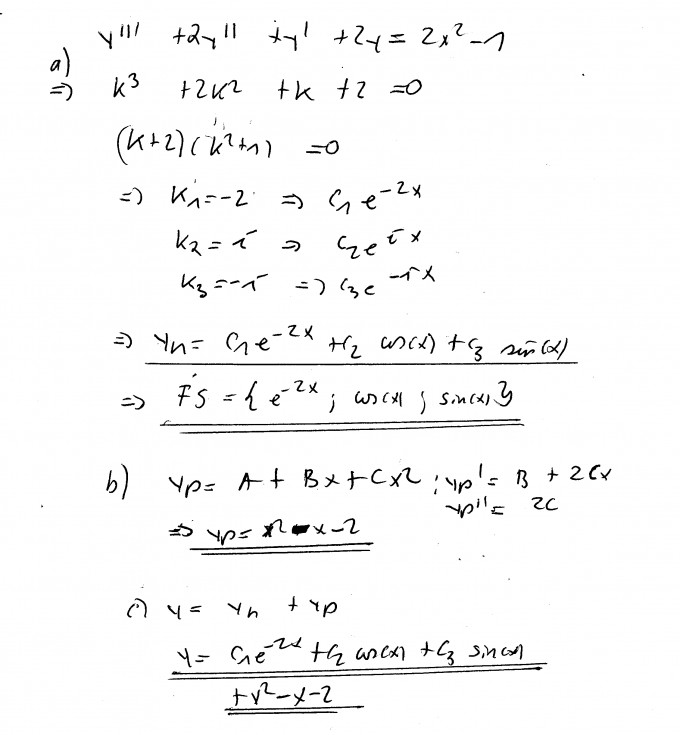 y''' + 2y'' + y' + 2y = 2x² - 1
a)
⇒ k³ + 2k² + k + 2 = 0
(k+2)(k²+1) = 0
⇒ k₁ = -2 ⇒ C₁e^(-2x)
k₂ = i ⇒ C₂e^(ix)
k₃ = -i ⇒ C₃e^(-ix)
⇒ yh = C₁e^(-2x) + C₂ cos(x) + C₃ sin(x)
⇒ FS = { e^(-2x) ; cos(x) ; sin(x) }
b) yp = A + Bx + Cx² ; yp' = B + 2Cx
yp'' = 2C
⇒ yp = x² - x - 2
c) y = yh + yp
y = C₁e^(-2x) + C₂ cos(x) + C₃ sin(x)
+ x² - x - 2